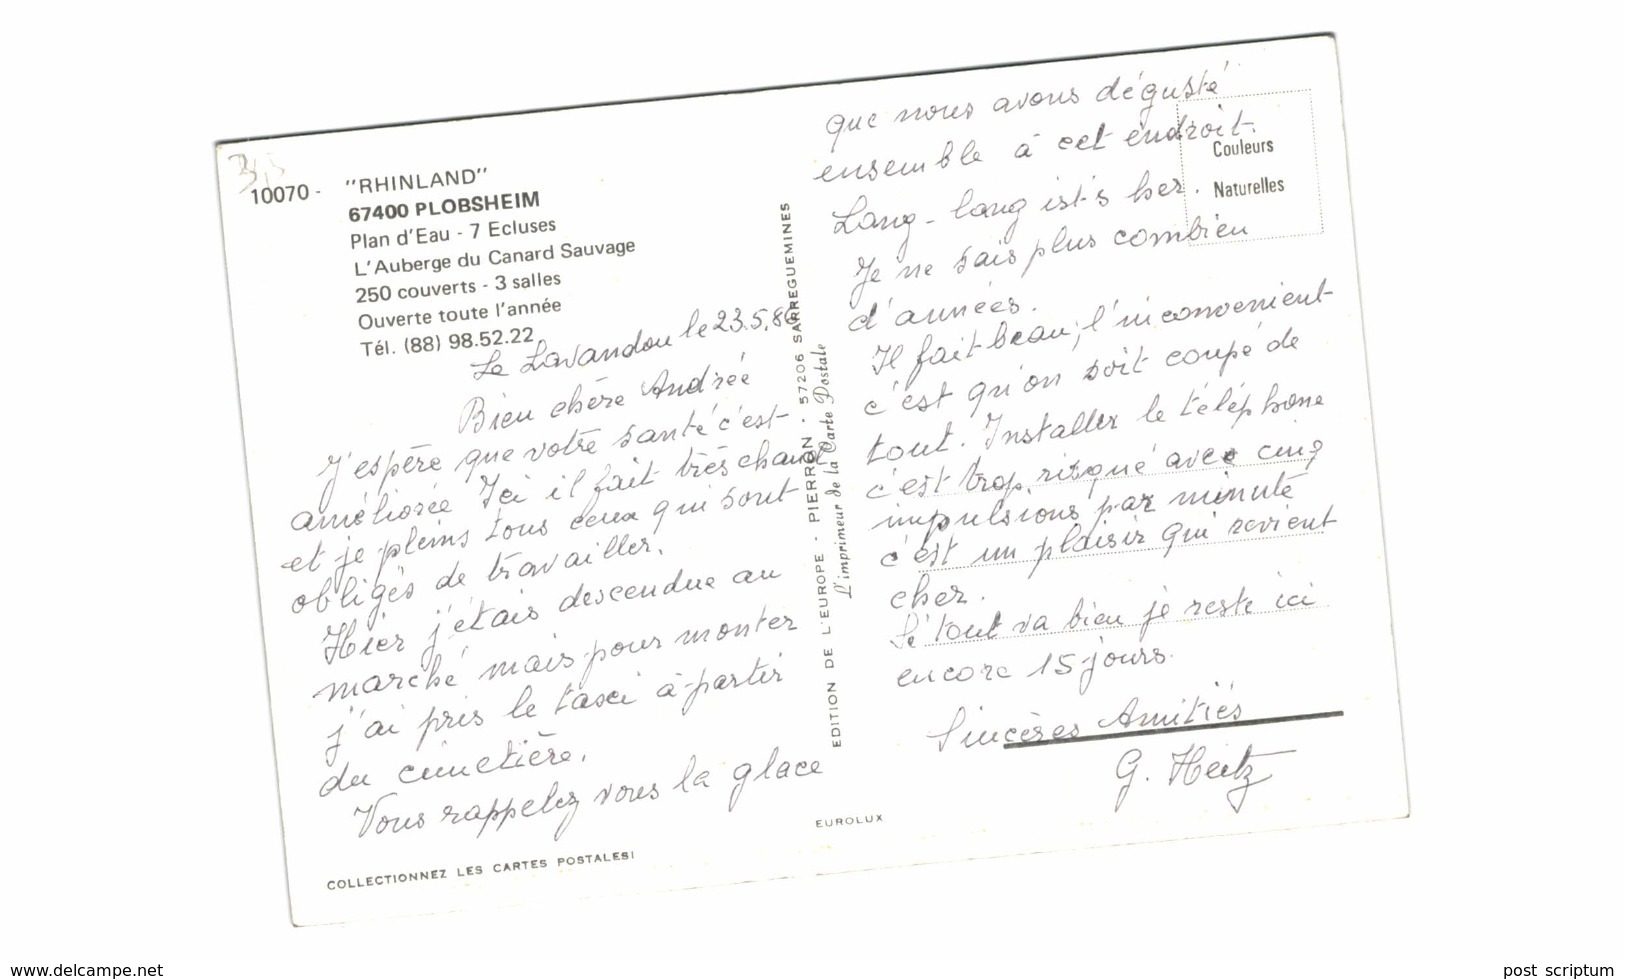 10070 - "RHINLAND"
67400 PLOBSHEIM
Plan d'Eau - 7 Ecluses
L'Auberge du Canard Sauvage
250 couverts - 3 salles
Ouverte toute l'année
Tél. (88) 98.52.22
Le Lavandou le 23.5.86
Bien chère Andrée
J'espère que votre santé c'est
améliorée Ici il fait très chaud
et je pleins tous ceux qui sont
obligés de travailler.
Hier j'étais descendue au
marché mais pour monter
j'ai pris le taxi à partir
du cimetière.
Vous rappelez vous la glace
COLLECTIONNEZ LES CARTES POSTALES!
EDITION DE L'EUROPE - PIERRON - 57206 SARREGUEMINES
L'imprimeur de la Carte Postale
EUROLUX
Couleurs
Naturelles
que nous avons dégusté
ensemble à cet endroit.
Lang - lang ist's her.
Je ne sais plus combien
d'années.
Il fait beau, l'inconvenient
c'est qu'on soit coupé de
tout. Installer le téléphone
c'est trop risqué avec cinq
impulsions par minute
c'est un plaisir qui revient
cher.
Si tout va bien je reste ici
encore 15 jours.
Sincères Amitiés
G. Heitz
www.delcampe.net
post_scriptum